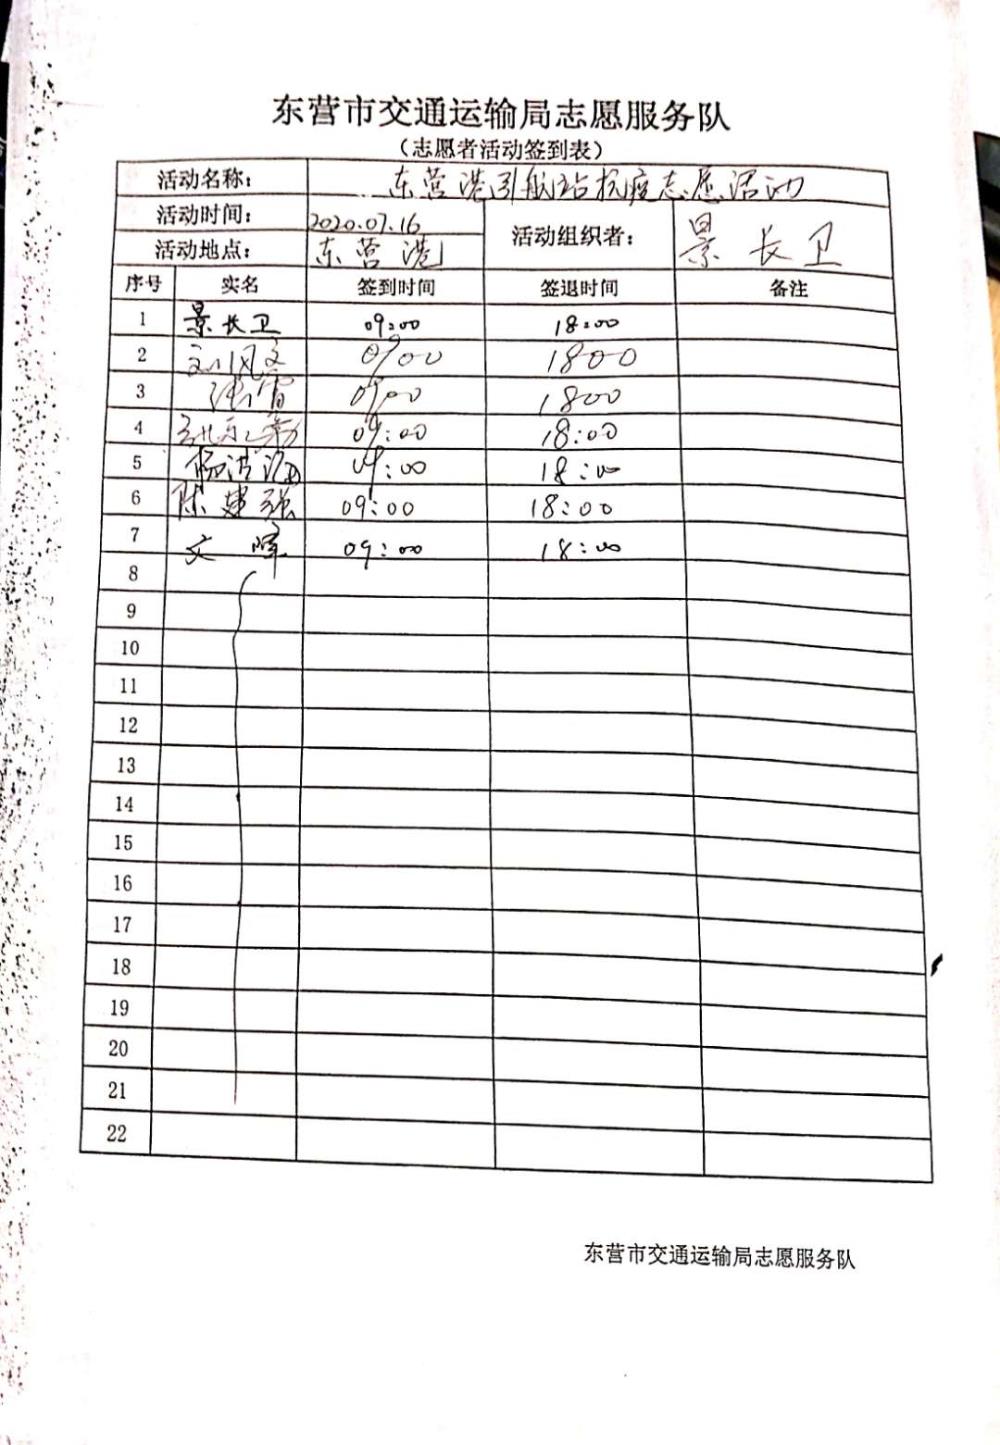 东营市交通运输局志愿服务队
（志愿者活动签到表）
活动名称： 东营港引航站抗疫志愿活动
活动时间： 2020.07.16 活动组织者： 景长卫
活动地点： 东营港
序号 实名 签到时间 签退时间 备注
1 景长卫 09:00 18:00
2 刘风文 0900 1800
3 0900 1800
4 09:00 18:00
5 09:00 18:00
6 陈建强 09:00 18:00
7 文晖 09:00 18:00
8
9
10
11
12
13
14
15
16
17
18
19
20
21
22
东营市交通运输局志愿服务队